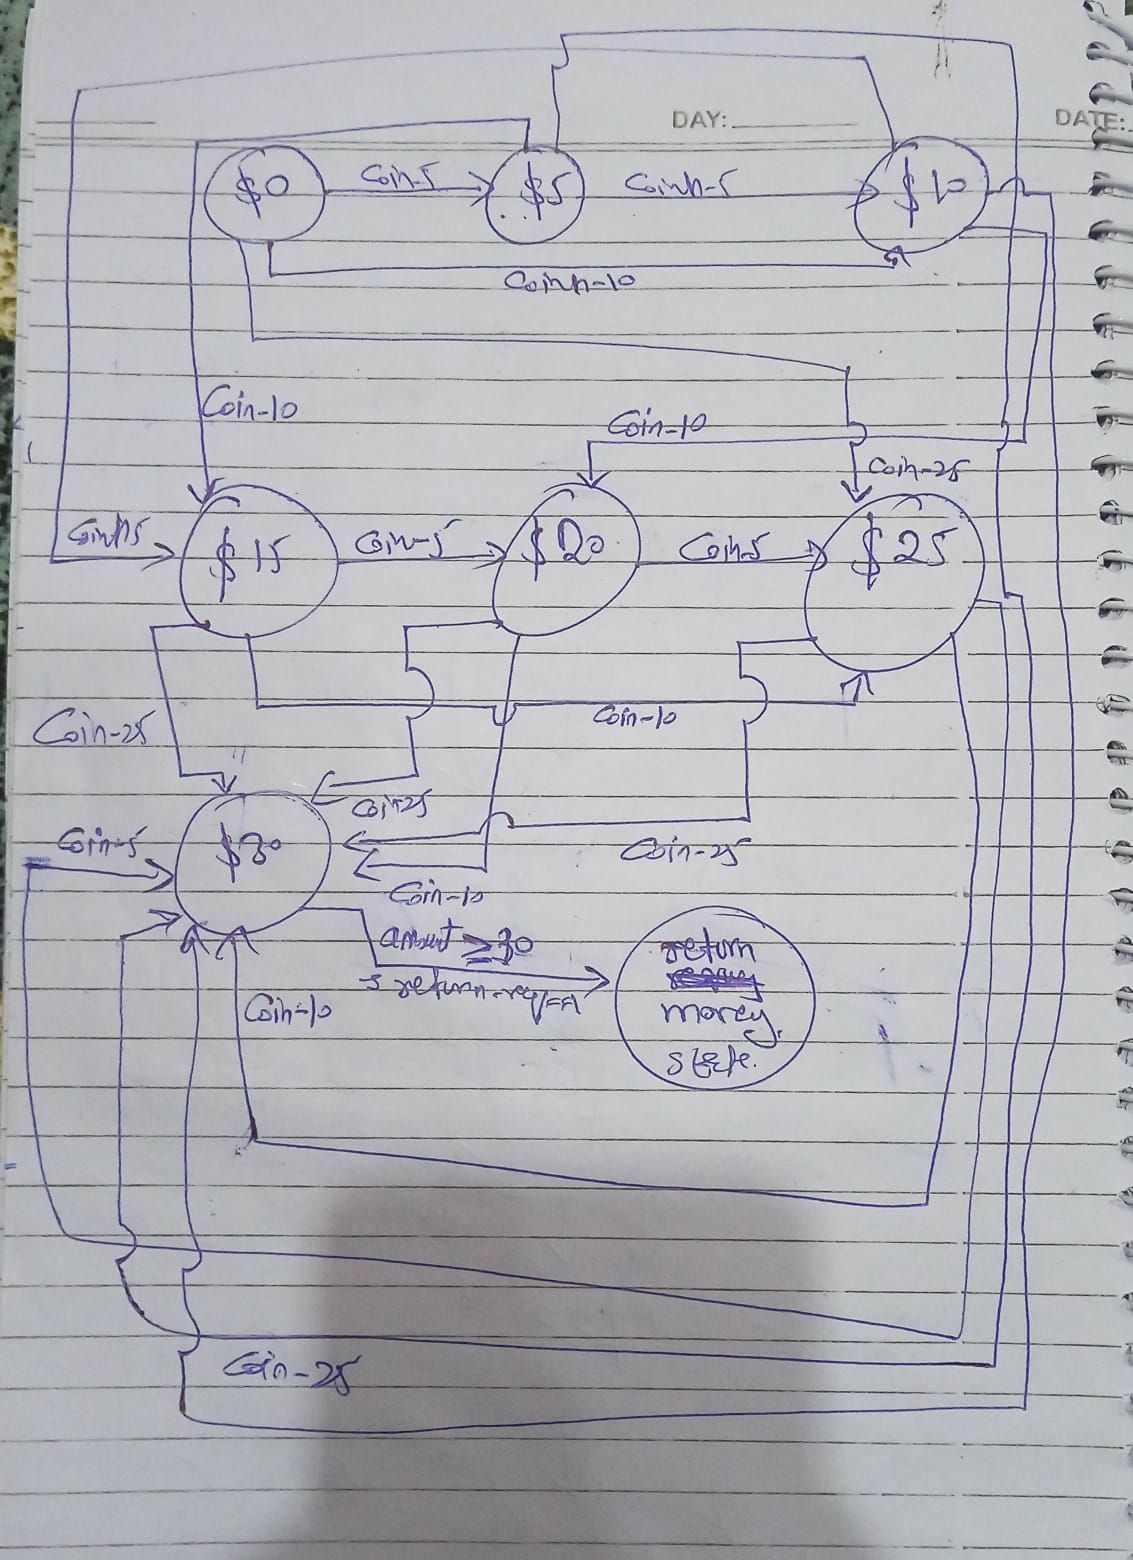 DAY:
DATE:
$0
Coin-5
$5
Coin-5
$10
Coin-10
Coin-10
Coin-10
Coin-25
Coin-5
$15
Coin-5
$20
Coin-5
$25
Coin-25
Coin-10
Coin-25
Coin-5
$30
Coin-25
Coin-10
amount ≥30
return
Coin-10
money
state.
Coin-25